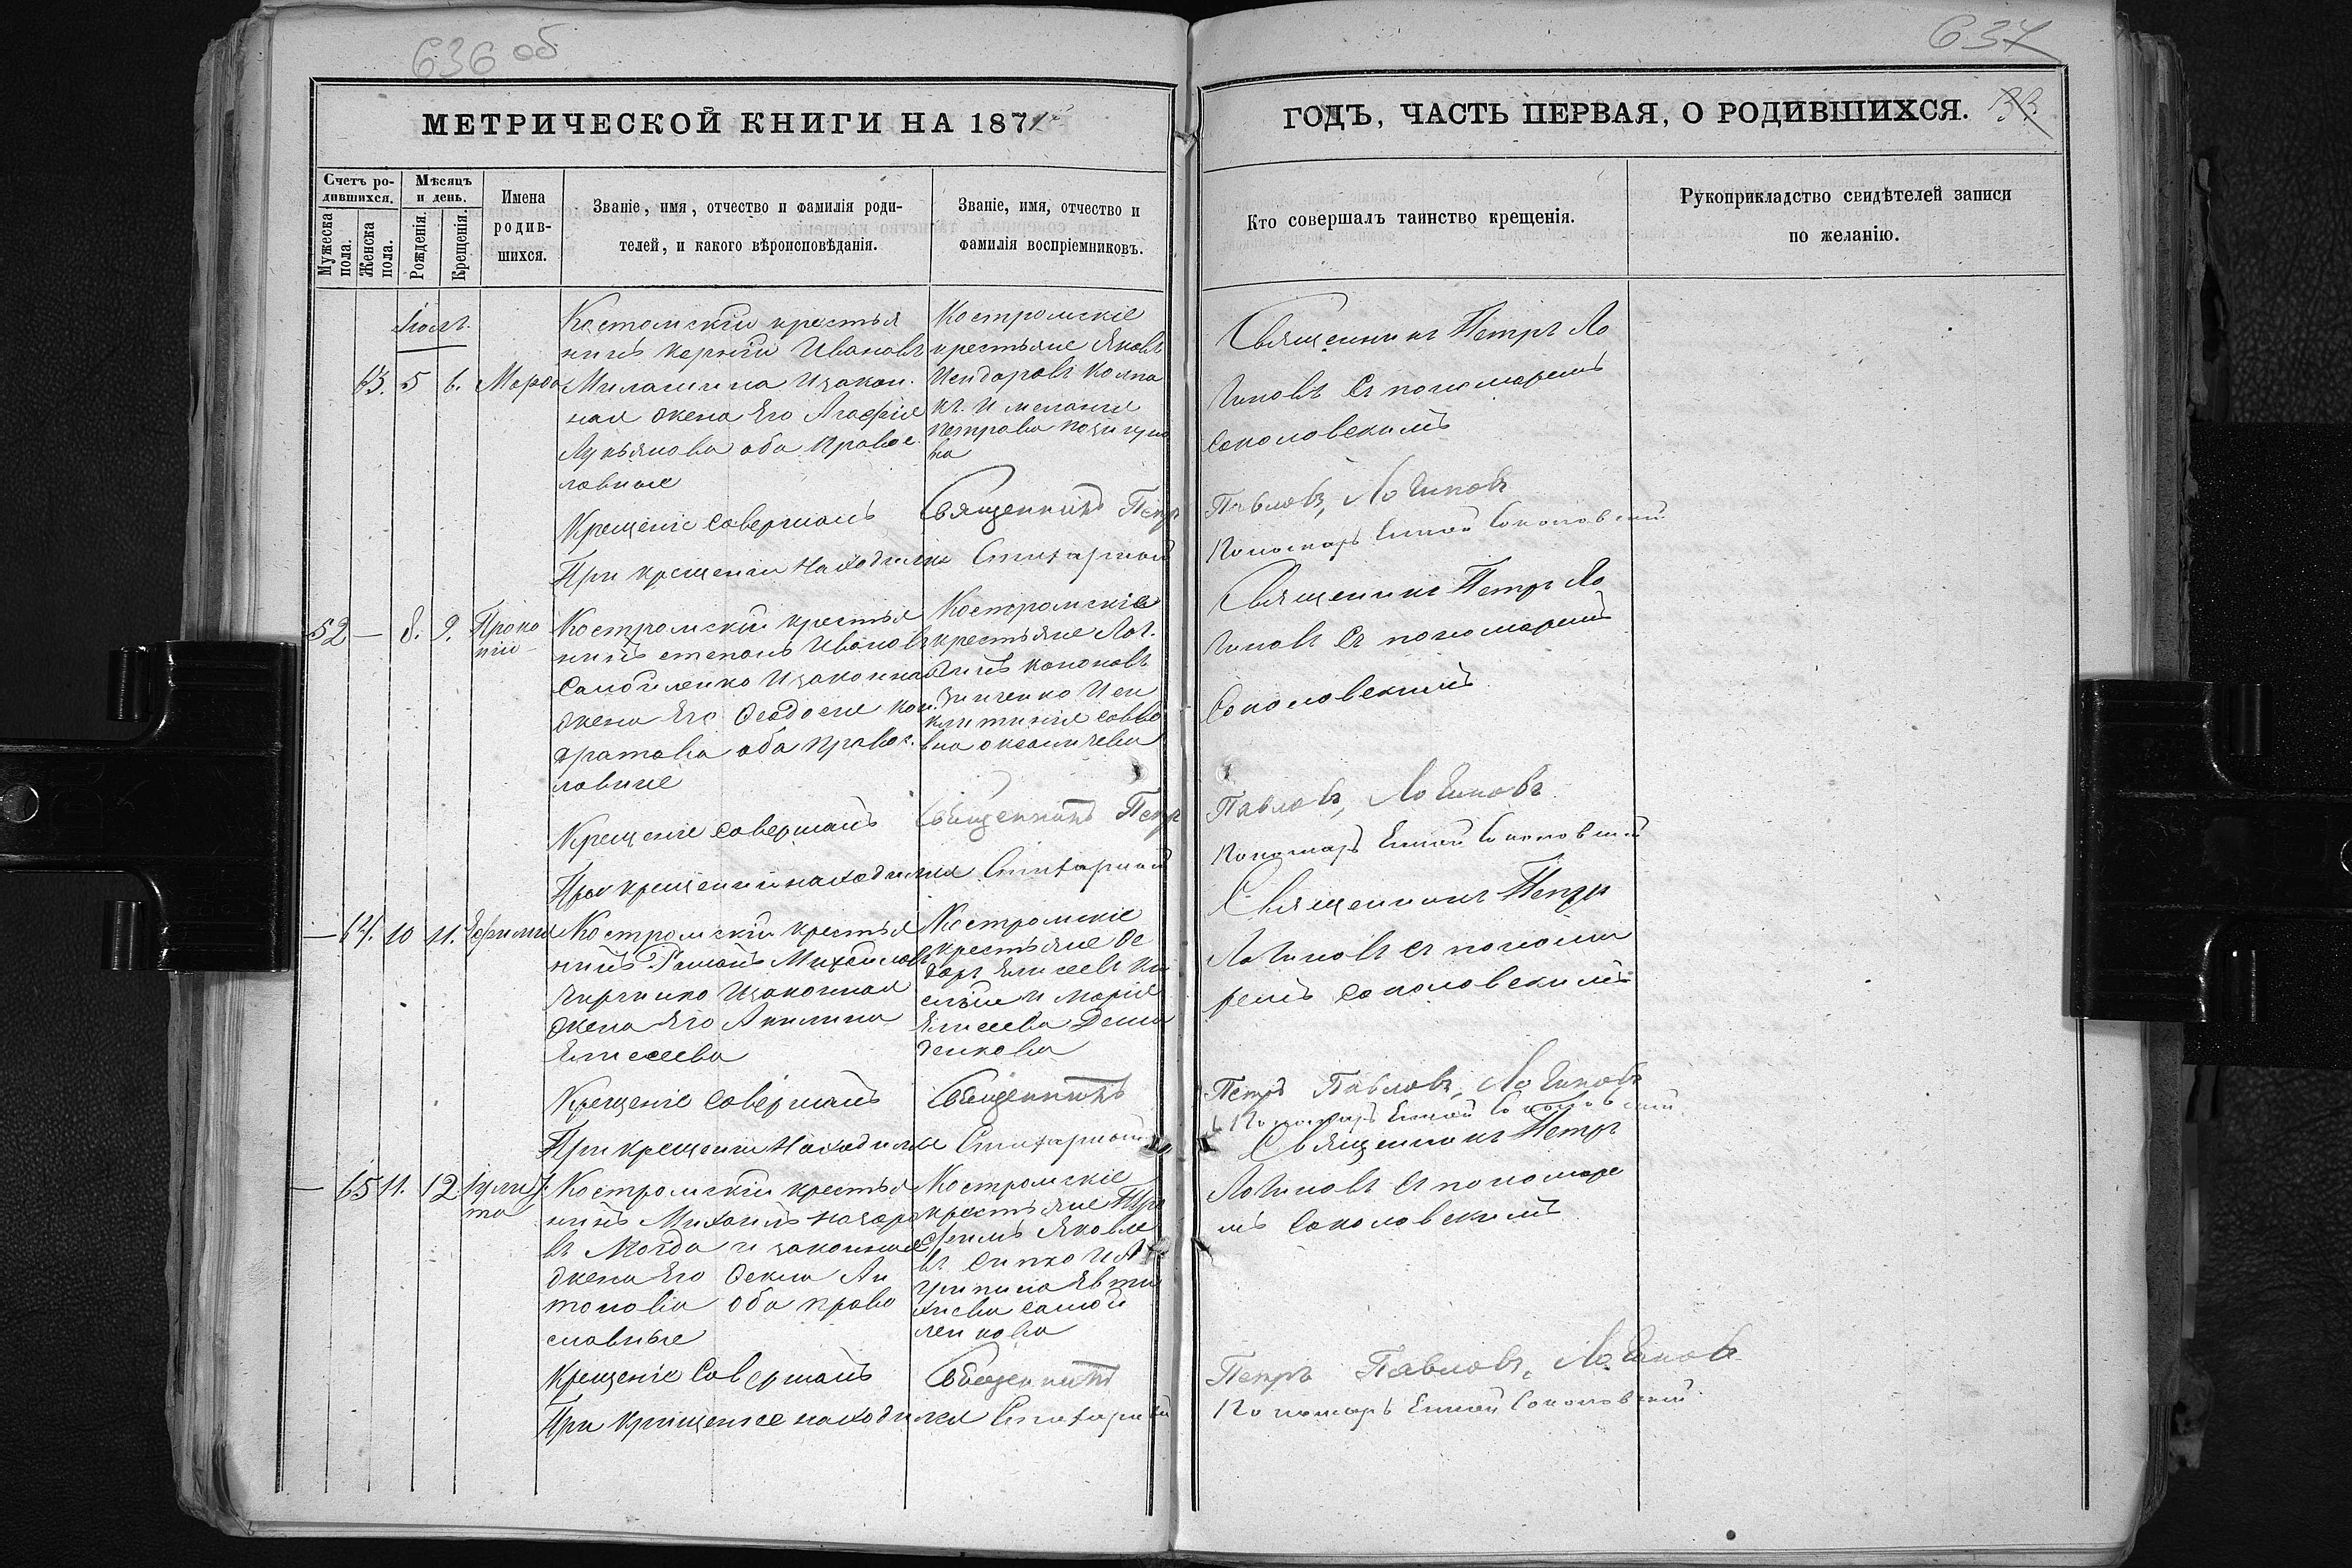 636 об
637
МЕТРИЧЕСКОЙ КНИГИ НА 1871
ГОДЪ, ЧАСТЬ ПЕРВАЯ, О РОДИВШИХСЯ.
33
Счетъ ро-
дившихся.
Мужеска
пола.
Женска
пола.
Мѣсяцъ
и день.
Рожденія.
Крещенія.
Имена
родив-
шихся.
Званіе, имя, отчество и фамилія роди-
телей, и какого вѣроисповѣданія.
Званіе, имя, отчество и
фамилія воспріемниковъ.
Кто совершалъ таинство крещенія.
Рукоприкладство свидѣтелей записи
по желанію.
Іюль.
63. 5 6. Марѳа
Костомскій крестья
нинъ Иванов
изакон
ная жена Его Агафія
Лукьянова оба Правос
лавные
Костромскіе
крестьяне Яковъ
и меланія
петрова
Священникъ Петръ Ло
гиновъ Съ пономаремъ
Соколовскимъ
Крещеніе Совершалъ Священникъ Петр
Павловъ, Логиновъ
При крещеніи Находился Стихарный
Пономарь Соколовский
52 — 8. 9. Проко
пій
Костромскій крестья
нинъ степанъ Иванов
Самойленко Изаконная
жена Его Ѳеодосія Кон
дратова оба Правос
лавные
Костромскіе
крестьяне Лог
гинъ кононовъ
Зинченко Иен
савво
вна
Священникъ Петръ Ло
гиновъ Съ пономаремъ
Соколовскимъ
Крещеніе Совершалъ Священникъ Петр
Павловъ, Логиновъ
При крещеніи находился Стихарный
Пономарь Соколовский
— 64. 10 11. Ефимия
Костромскій крестья
нинъ Романъ Михайлов
Изаконная
жена Его Акилина
Елисеева
Костромскіе
крестьяне Ѳе
доръ Елисеевъ
и Марія
Елисеева
Священникъ Петръ
Логиновъ Съ понома
ремъ Соколовскимъ
Крещеніе Совершалъ Священникъ
Петръ Павловъ, Логиновъ
При крещеніи Находился Стихарный
Пономарь Соколовский
— 65 11. 12. Іули
та
Костромскій крестья
нинъ Михаилъ назаро
въ и законная
жена Его Ѳекла Ан
тонова оба право
славные
Костромскіе
крестьяне Тро
фимъ Яковле
въ И А
грипина Евти
хиева Самой
ленкова
Священникъ Петръ
Логиновъ Съ пономаре
мъ Соколовскимъ
Крещеніе Совершалъ Священникъ
Петръ Павловъ, Логиновъ
При Крещеніе находился Стихарный
Пономарь Соколовский